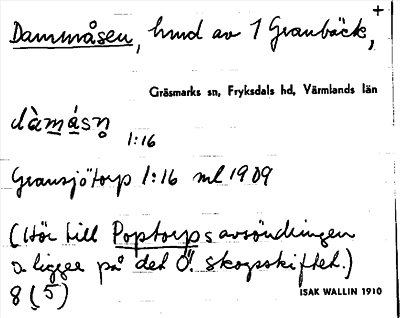 +
Dammåsen, hmd av 1 Granbäck,
Gräsmarks sn, Fryksdals hd, Värmlands län
dàmásn̥
1:16
Gransjötorp 1:16 ml 1909
(Hör till Poptorps avsöndringen
o. ligger på det Ö. skogsskiftet.)
8 (5)
ISAK WALLIN 1910